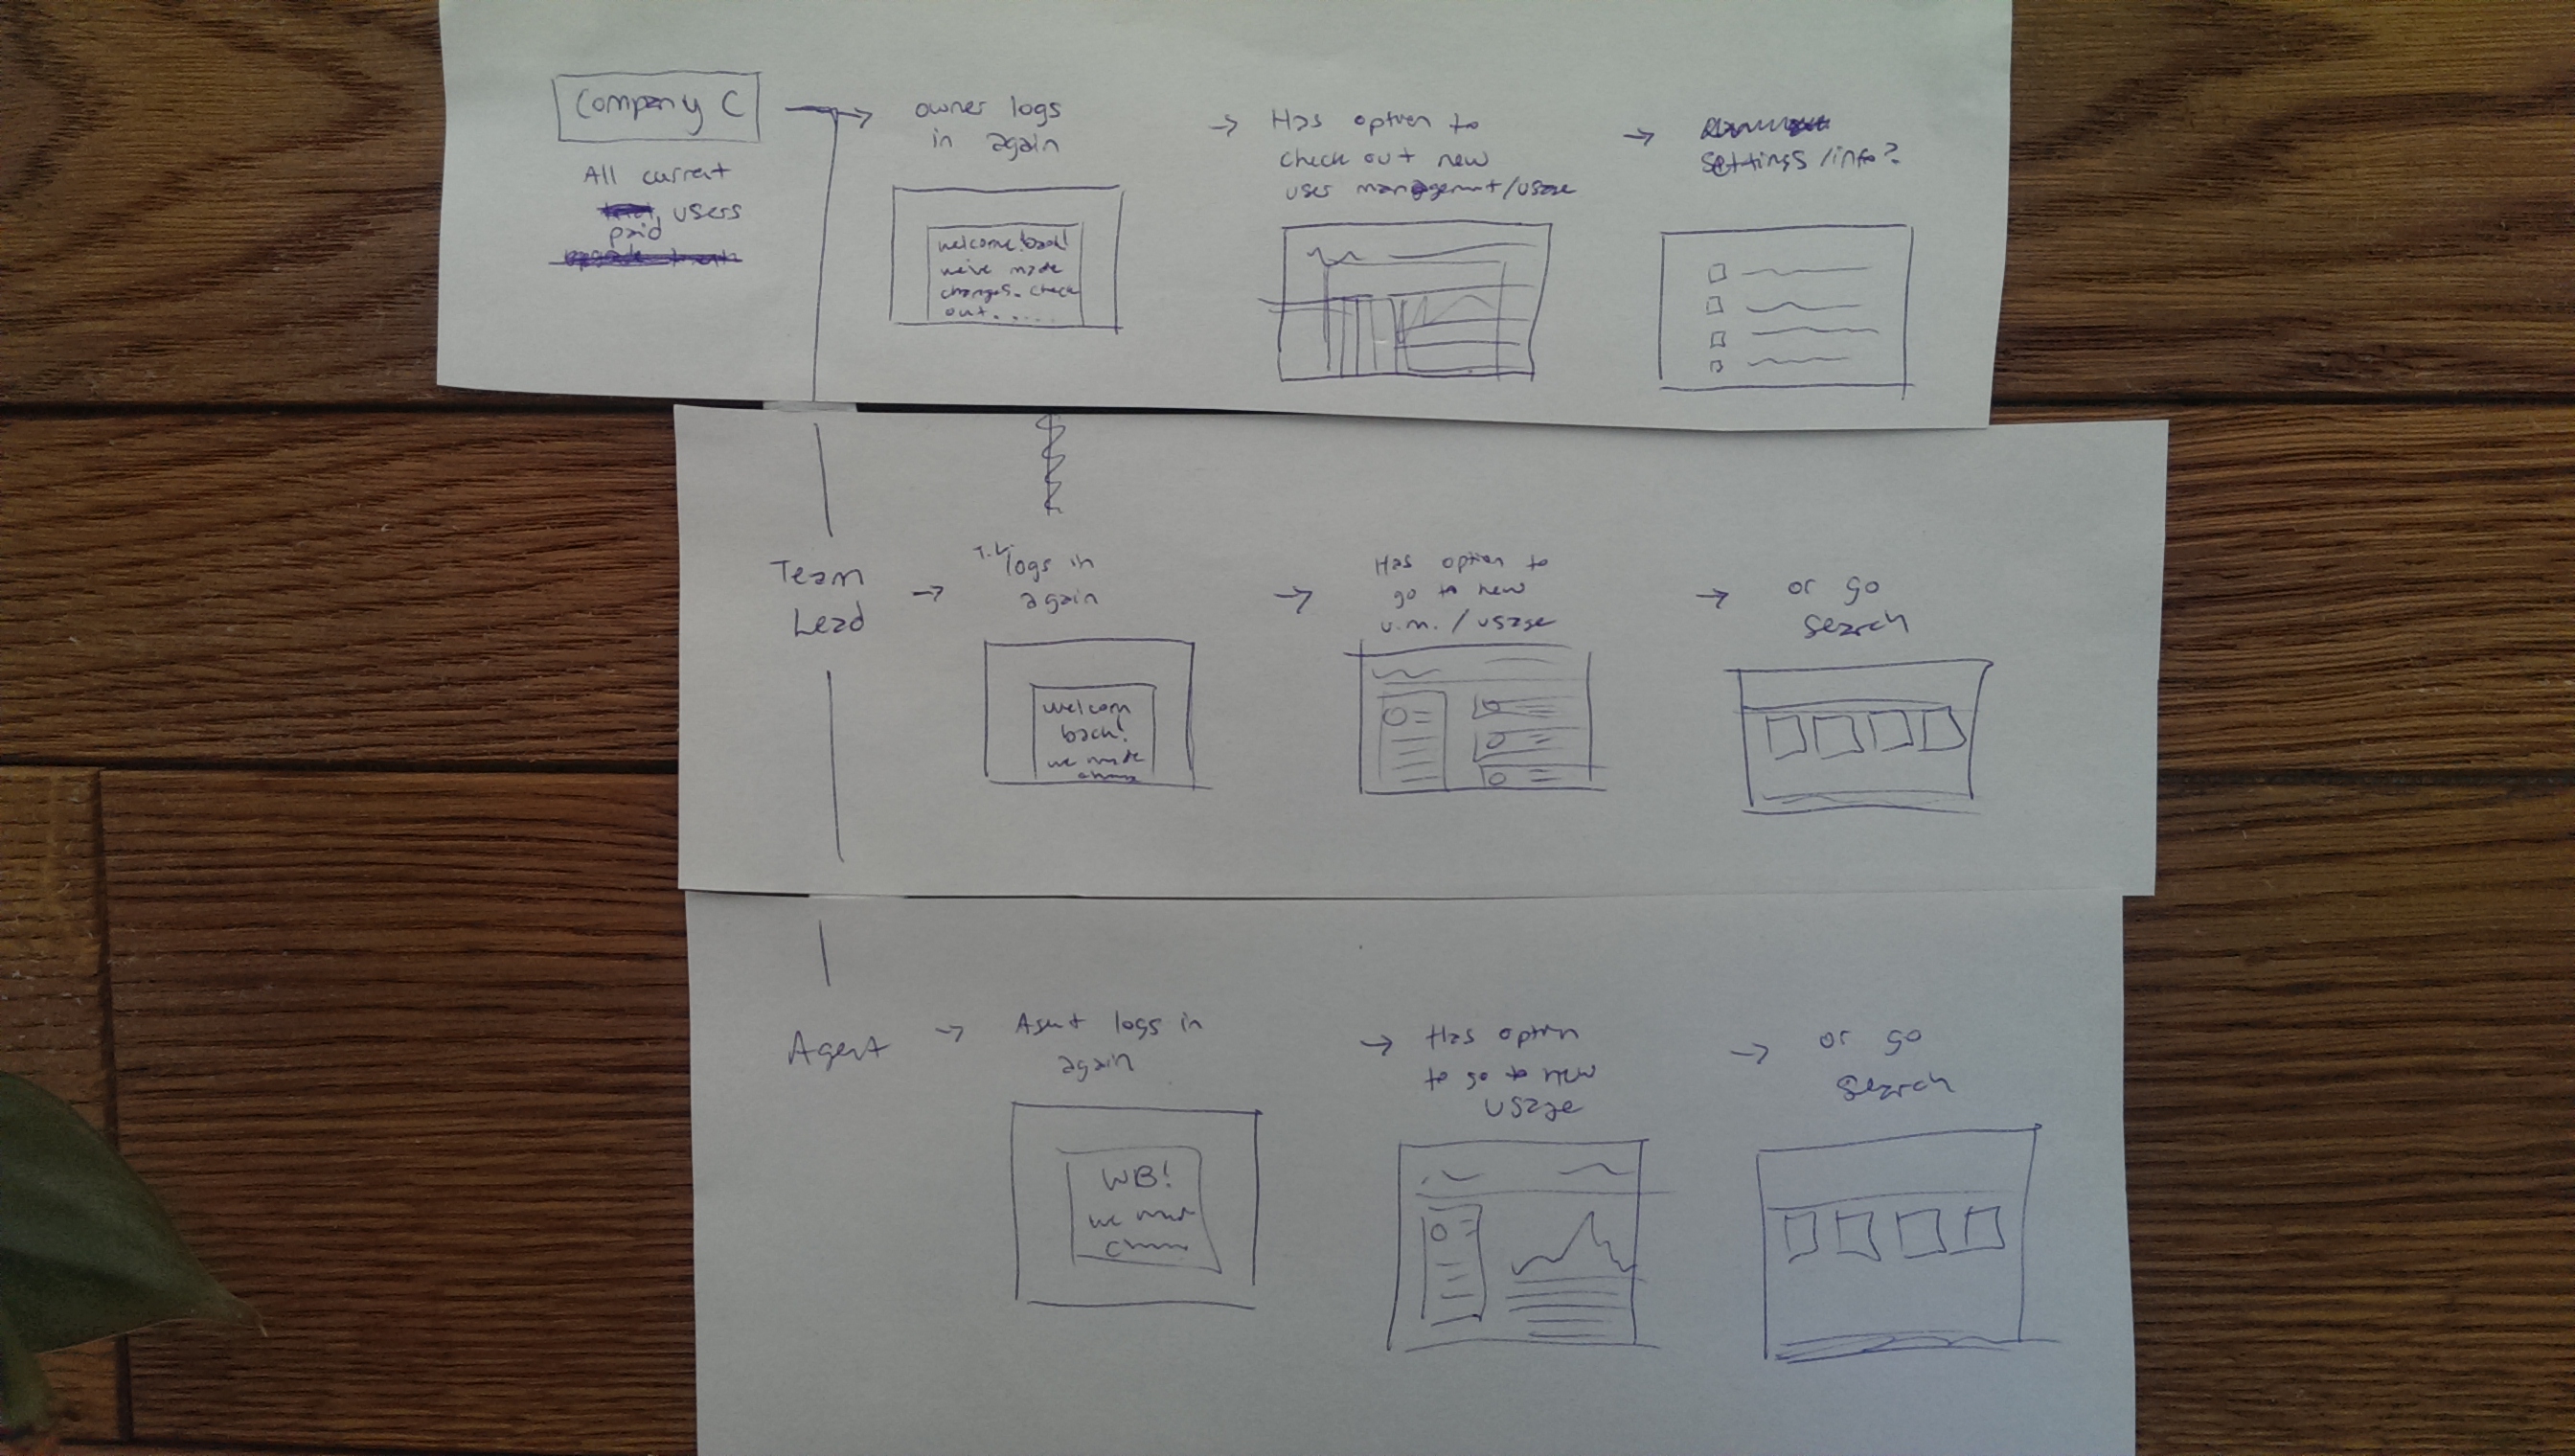 Company C
All current
users
paid
owner logs
in again
welcome back!
we've made
changes. check
out.....
Has option to
check out new
user management/usage
settings/info?
Team
Lead
T.L.
logs in
again
welcom
back!
we made
Has option to
go to new
u.m. / usage
or go
search
Agent
Agent logs in
again
WB!
we
Has option
to go to new
usage
or go
search